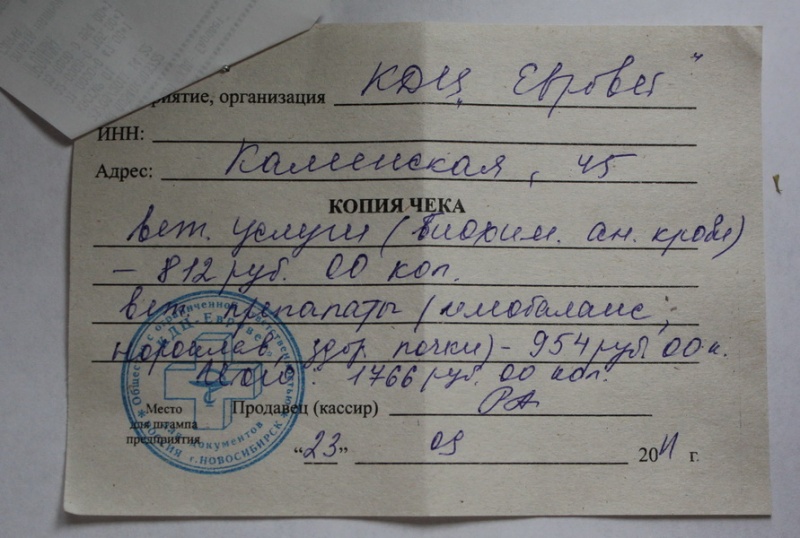 риятие, организация КДЦ „Евровет"
ИНН:
Адрес: Каменская, 45
КОПИЯ ЧЕКА
вет. услуги (биохим. ан. крови)
– 812 руб. 00 коп.
вет. препараты (гемобаланс,
здор. почки) – 954 руб 00 к.
Итого: 1766 руб. 00 коп.
Продавец (кассир)
Место
для штампа
предприятия
"23" 09 2011 г.
Общество с ограниченной ответственностью
КДЦ Евровет
Для документов
РОССИЯ г. НОВОСИБИРСК